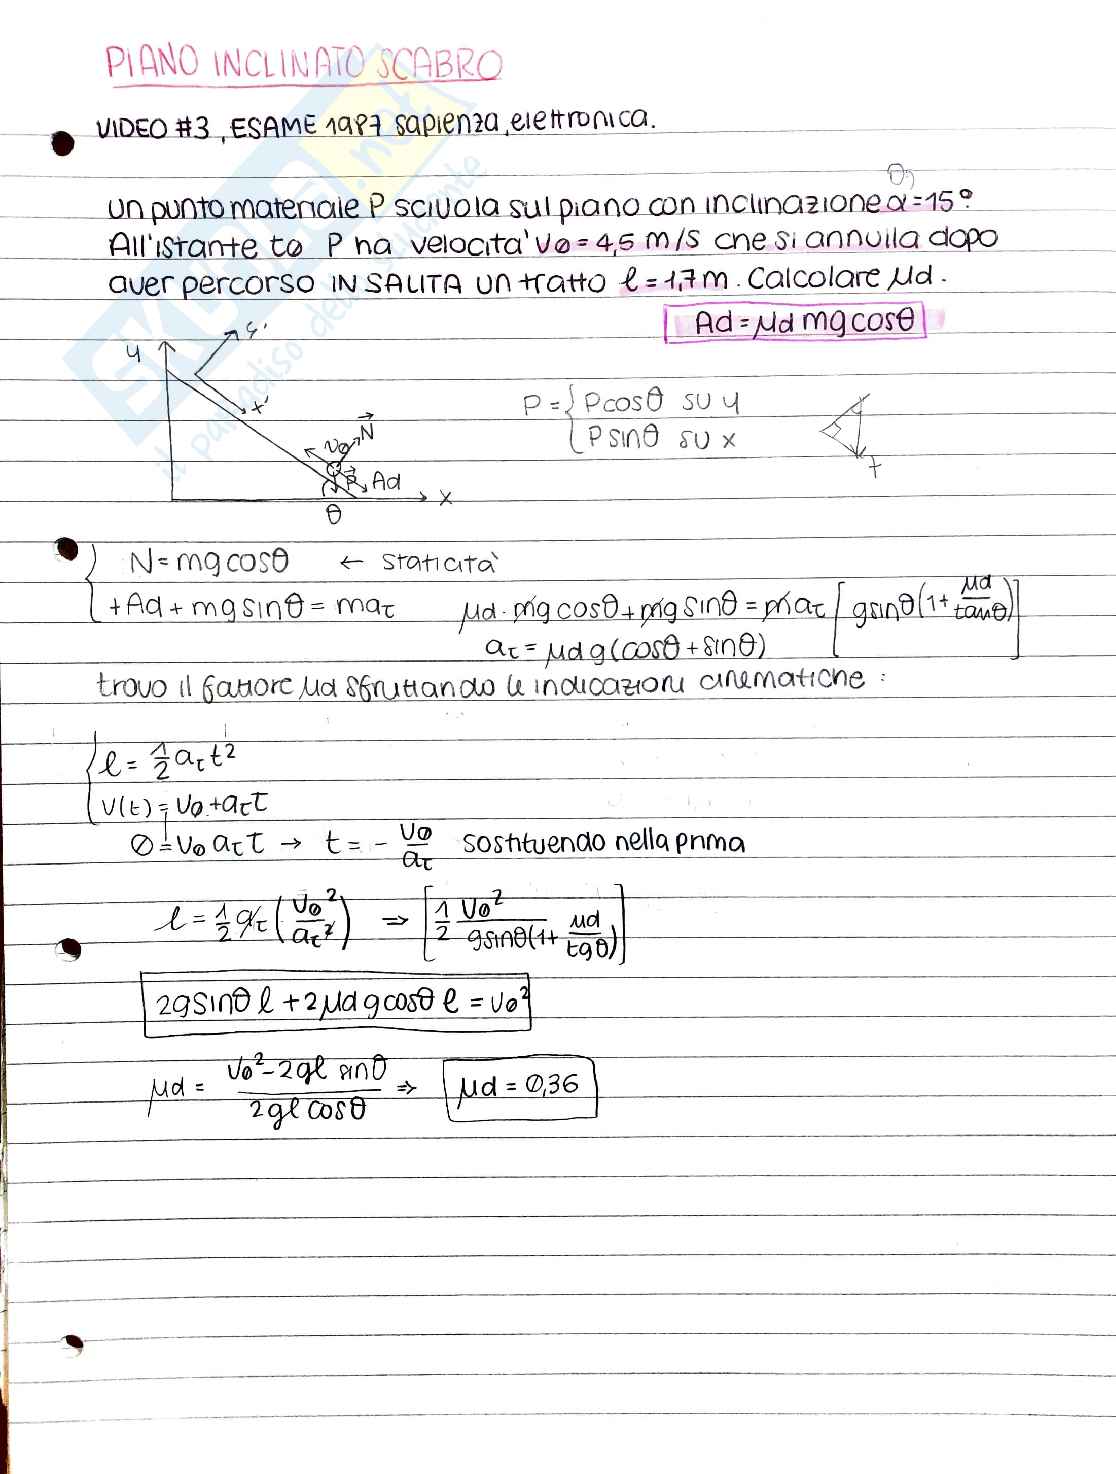 PIANO INCLINATO SCABRO
VIDEO #3, ESAME 1987 sapienza, elettronica.
θ
un punto materiale P scivola sul piano con inclinazione α=15°.
All'istante t0 P ha velocità v0=4,5 m/s che si annulla dopo
aver percorso IN SALITA un tratto ℓ=1,7m. Calcolare μd.
Ad = μd mg cosθ
y
y'
x'
v0
N
P
Ad
x
θ
P = { Pcosθ su y
Psinθ su x
N = mg cosθ ← staticità
+Ad + mg sinθ = maτ   μd·mg cosθ + mg sinθ = maτ [gsinθ(1+ μd/tanθ)]
aτ = μd g(cosθ + sinθ)
trovo il fattore μd sfruttando le indicazioni cinematiche:
ℓ = 1/2 aτt²
v(t) = v0 + aτt
0 = v0 aτt → t = - v0/aτ sostituendo nella prima
ℓ = 1/2 aτ (v0²/aτ²) ⇒ [1/2 v0²/gsinθ(1+ μd/tgθ)]
2gsinθ ℓ + 2μd g cosθ ℓ = v0²
μd = v0² - 2gℓ sinθ / 2gℓ cosθ ⇒ μd = 0,36
SKUOLA.net
il paradiso dello studente